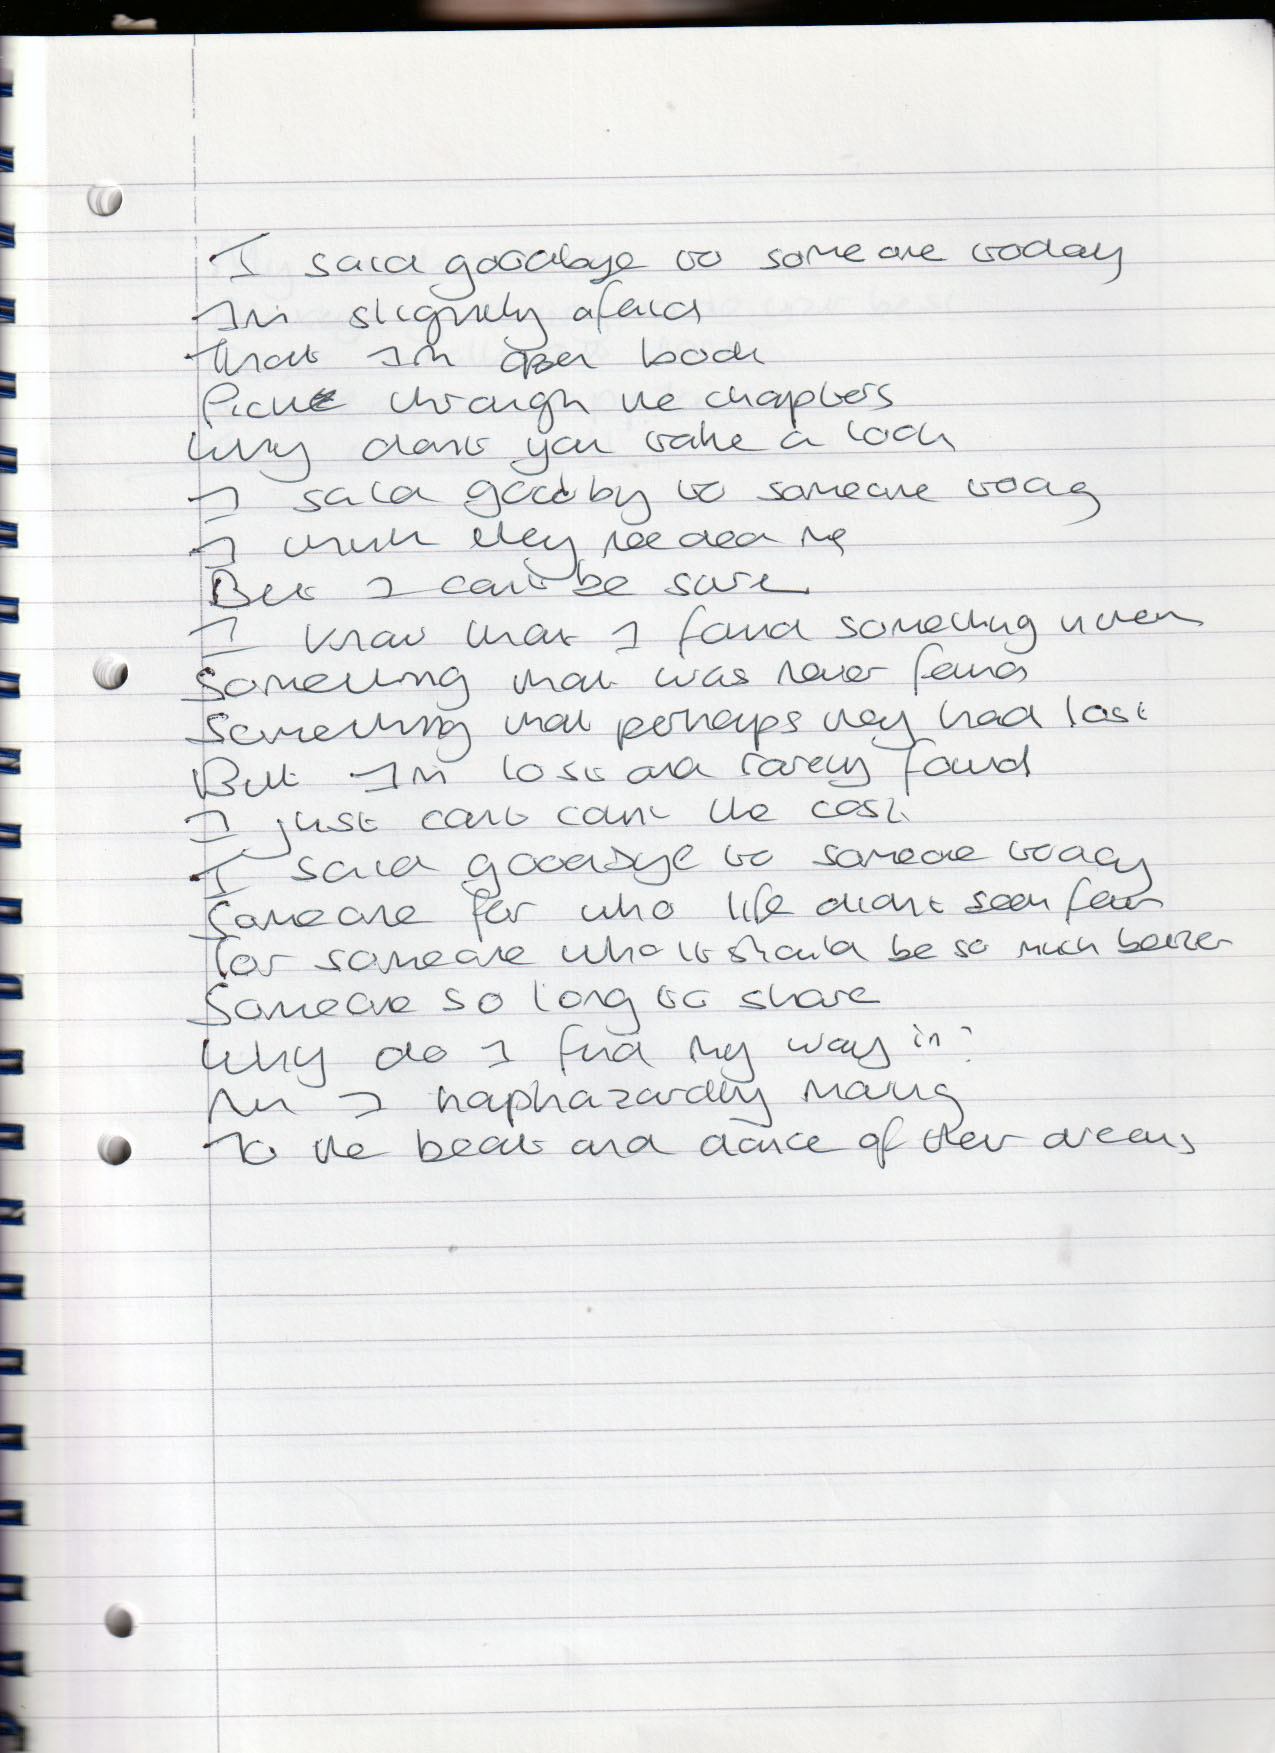 I said goodbye to someone today
Im slightly afraid
That Im open book
Pick through the chapters
Why dont you take a look
I said goodby to someone today
I think they needed me
But I cant be sure
I know that I found something in them
Something that was never found
Something that perhaps they had lost
But Im lost and rarely found
I just cant count the cost
I said goodbye to someone today
Someone for who life didnt seem fair
For someone who it should be so much better
Someone so long to share
Why do I find my way in?
Am I haphazardly moving
To the beat and dance of their dreams